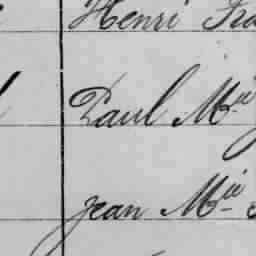 Henri
Paul Mie
Jean Mie